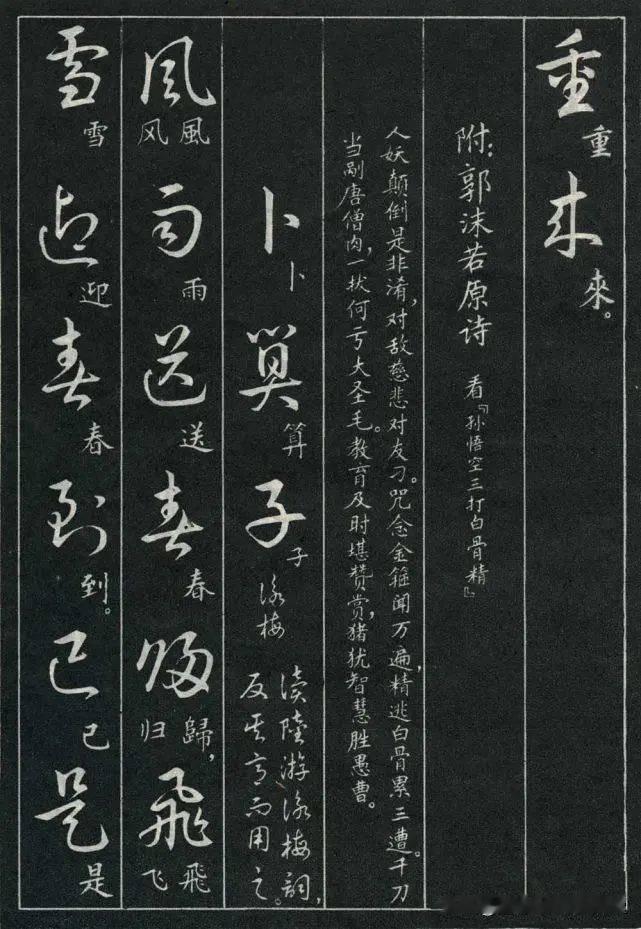 重重来來。
附:郭沫若原诗 看『孙悟空三打白骨精』
人妖颠倒是非淆,对敌慈悲对友刁。咒念金箍闻万遍,精逃白骨累三遭。千刀
当剐唐僧肉,一拔何亏大圣毛。教育及时堪赞赏,猪犹智慧胜愚曹。
卜卜算算子子 詠梅
读陸游詠梅詞,
反其意而用之。
風風风雨雨送送春春歸歸,归飛飛飞
雪雪迎迎春春到到。已已是是